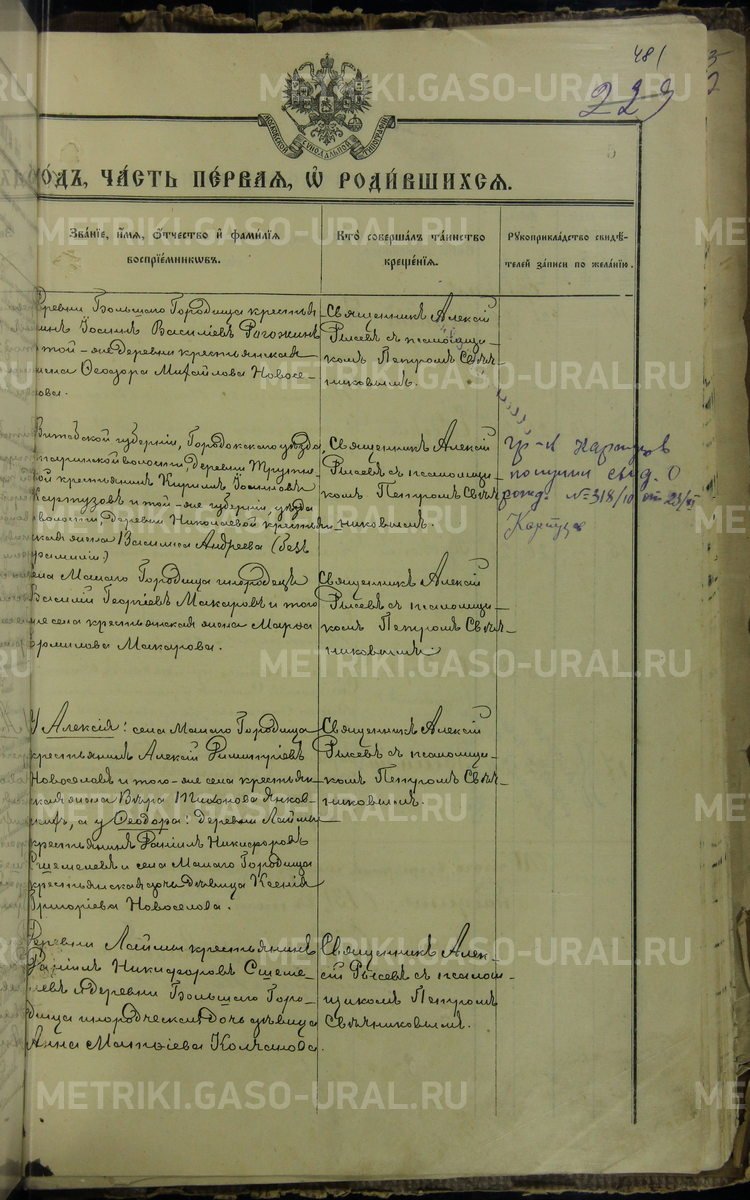 481
229
МОСКОВСКОЙ СѴНОДАЛЬНОЙ ТИПОГРАФІИ
О́ДЪ, ЧА́СТЬ ПЕ́РВАЯ, Ѡ҆ РОДИ́ВШИХСЯ.
Зва́нїе, и҆́мя, ѻ҆́тчество и҆ фами́лїя воспрїе́мникѡвъ.
Кто̀ соверша́лъ та́инство креще́нїя.
Рꙋкоприкла́дство свидѣ́телей за́писи по жела́нїю.
Деревни Большаго Городища крестья
нинъ Іоаннъ Василіевъ Рогожинъ
и той-же деревни крестьянская
жена Ѳеодора Михайлова Новосе-
лова.
Священникъ Алексій
Рысевъ съ псаломщи-
комъ Петромъ Свѣч-
никовымъ.
Витебской губерніи, Городокскаго уѣзда
волости деревни
крестьянинъ Кириллъ Іоанновъ
Картузовъ и той-же губерніи, уѣзда
и волости, деревни Николаевой крестьян-
ская жена Василиса Андреева (безъ
фамиліи)
Священникъ Алексій
Рысевъ съ псаломщи-
комъ Петромъ Свѣч-
никовымъ.
гр-н Картузов
получил свид. о
рожд. № 318/10
Картузов
села Малаго Городища инородецъ
Василій Георгіевъ Макаровъ и того
же села крестьянская жена Марѳа
Ермилова Макарова.
Священникъ Алексій
Рысевъ съ псаломщи-
комъ Петромъ Свѣч-
никовымъ.
У Алексія: села Малаго Городища
крестьянинъ Алексій Димитріевъ
Новоселовъ и того-же села крестьян-
ская жена Вѣра Тихонова Янков-
а у Ѳеодора: деревни Лаймы
крестьянинъ Даніилъ Никифоровъ
Сшемелевъ и села Малаго Городища
крестьянская дочь дѣвица Ксенія
Григоріева Новоселова.
Священникъ Алексій
Рысевъ съ псаломщи-
комъ Петромъ Свѣч-
никовымъ.
Деревни Лаймы крестьянинъ
Даніилъ Никифоровъ Сшеме-
левъ и деревни Большаго Горо-
дища инородческая дочь дѣвица
Анна Матѳіева Колчанова.
Священникъ Алек-
сій Рысевъ съ псалом-
щикомъ Петромъ
Свѣчниковымъ.
METRIKI.GASO-URAL.RU